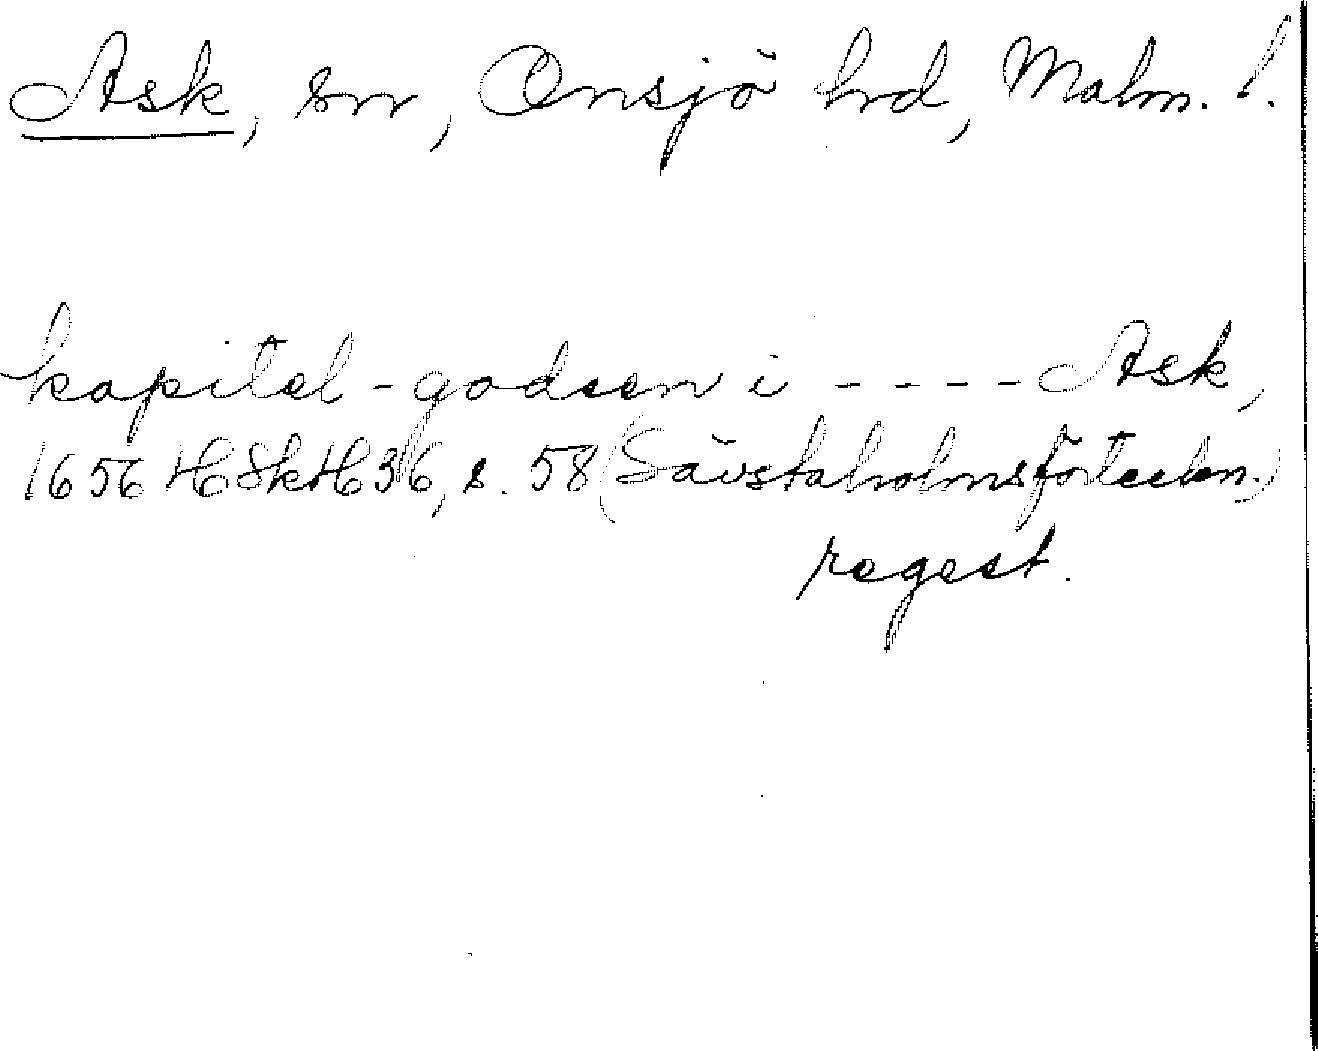 Ask, sn, Onsjö hrd, Malm. l.
kapitel-godsen i ---- Ask,
1656 HSkH 36, s. 58 (Sävstaholmsförteckn.)
regest.